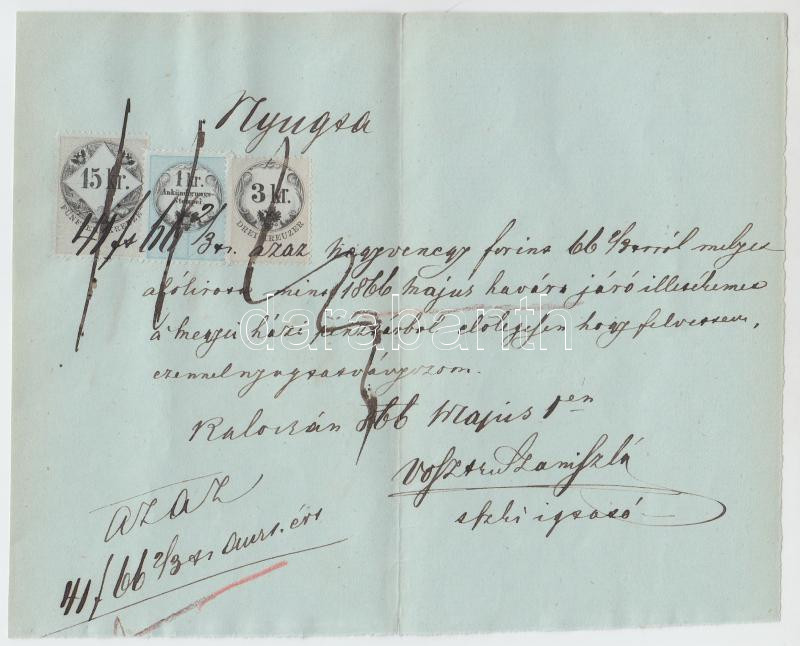 Nyugta
15 kr.
FÜNFZEHN KREUZER
1 kr.
Ankündigungs-
Stempel
3 kr.
DREI KREUZER
41 ft 66 2/3 kr. azaz negyvenegy forint 66 2/3 krról melyet
alólirott mint 1866 május havára járó illetékemet
a megyei házi pénztárból előlegesen hogy felvettem,
ezennel nyugtatványozom.
Kalocsán 866 Május 1én
Szaniszló
azaz
41 f 66 2/3 kr
darabanth